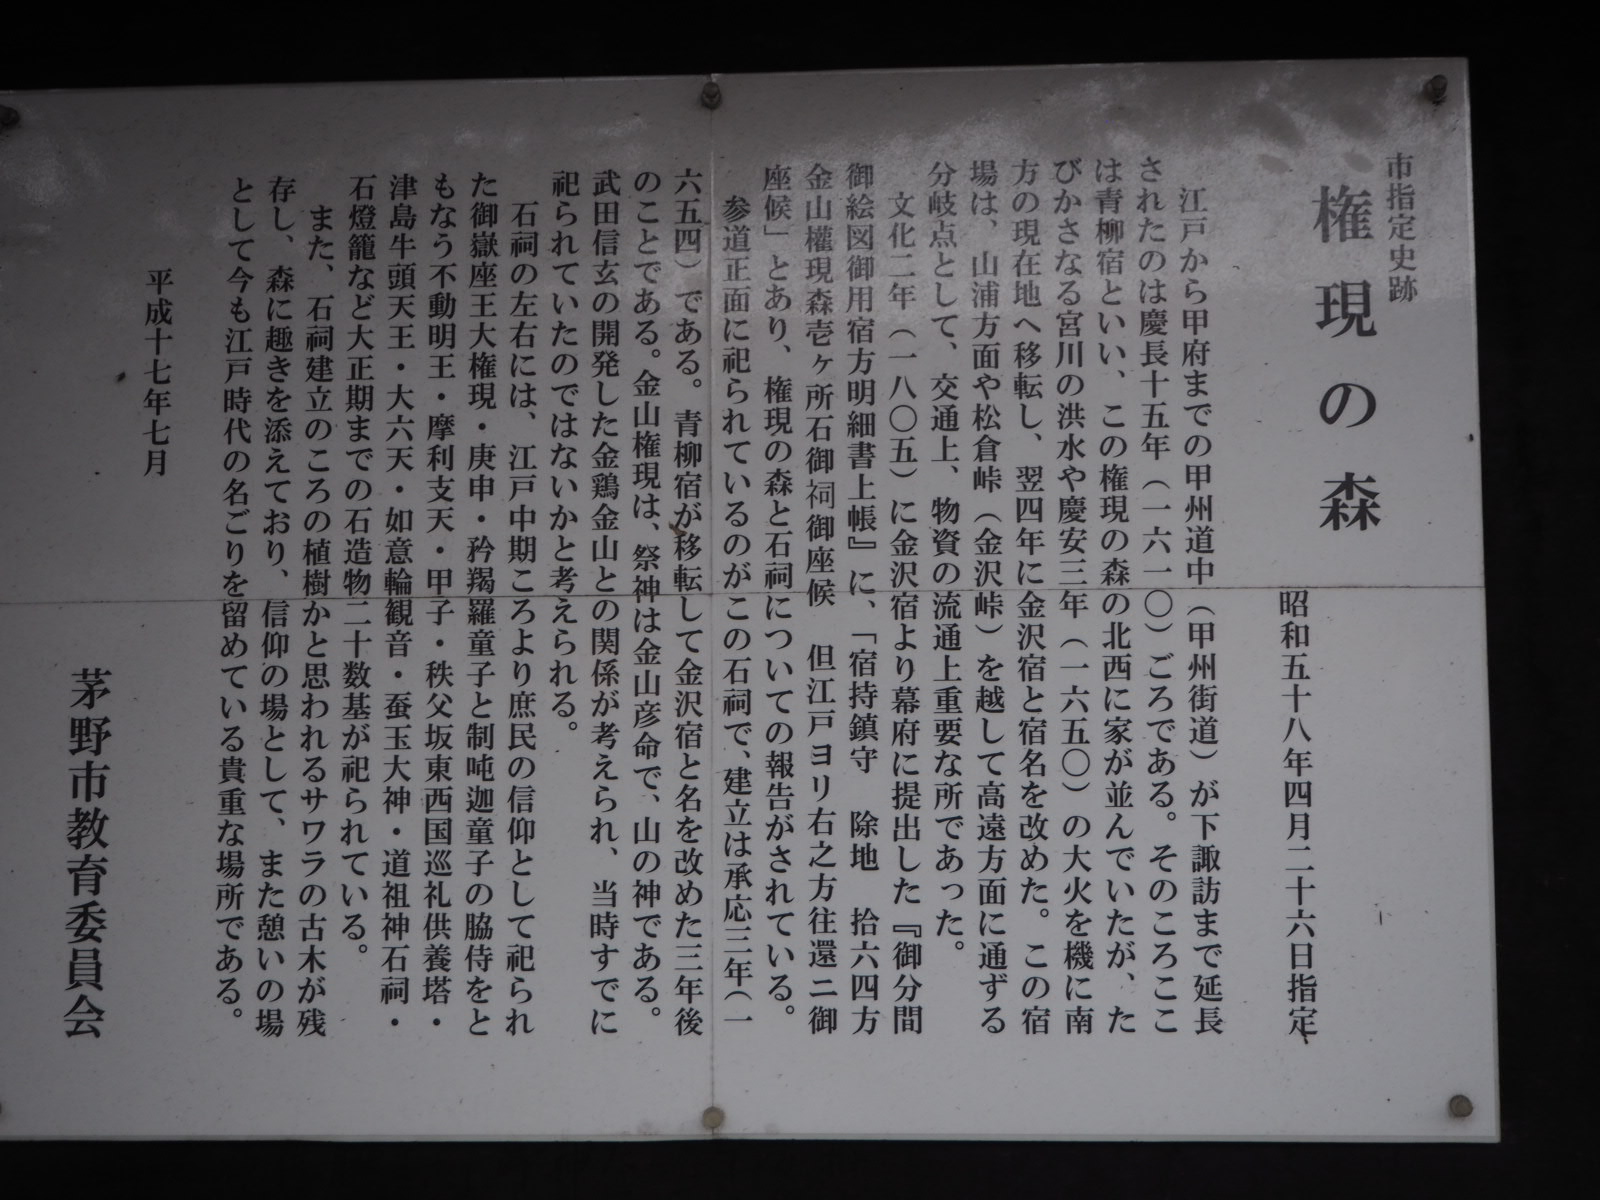 市指定史跡
権現の森
昭和五十八年四月二十六日指定
江戸から甲府までの甲州道中（甲州街道）が下諏訪まで延長
されたのは慶長十五年（一六一〇）ごろである。そのころここ
は青柳宿といい、この権現の森の北西に家が並んでいたが、た
びかさなる宮川の洪水や慶安三年（一六五〇）の大火を機に南
方の現在地へ移転し、翌四年に金沢宿と宿名を改めた。この宿
場は、山浦方面や松倉峠（金沢峠）を越して高遠方面に通ずる
分岐点として、交通上、物資の流通上重要な所であった。
文化二年（一八〇五）に金沢宿より幕府に提出した『御分間
御絵図御用宿方明細書上帳』に、「宿持鎮守　除地　拾六四方
金山權現森壱ヶ所石御祠御座候　但江戸ヨリ右之方往還ニ御
座候」とあり、権現の森と石祠についての報告がされている。
参道正面に祀られているのがこの石祠で、建立は承応三年（一
六五四）である。青柳宿が移転して金沢宿と名を改めた三年後
のことである。金山権現は、祭神は金山彦命で、山の神である。
武田信玄の開発した金鶏金山との関係が考えられ、当時すでに
祀られていたのではないかと考えられる。
石祠の左右には、江戸中期ころより庶民の信仰として祀られ
た御嶽座王大権現・庚申・矜羯羅童子と制吨迦童子の脇侍をと
もなう不動明王・摩利支天・甲子・秩父坂東西国巡礼供養塔・
津島牛頭天王・大六天・如意輪観音・蚕玉大神・道祖神石祠・
石燈籠など大正期までの石造物二十数基が祀られている。
また、石祠建立のころの植樹かと思われるサワラの古木が残
存し、森に趣きを添えており、信仰の場として、また憩いの場
として今も江戸時代の名ごりを留めている貴重な場所である。
平成十七年七月
茅野市教育委員会